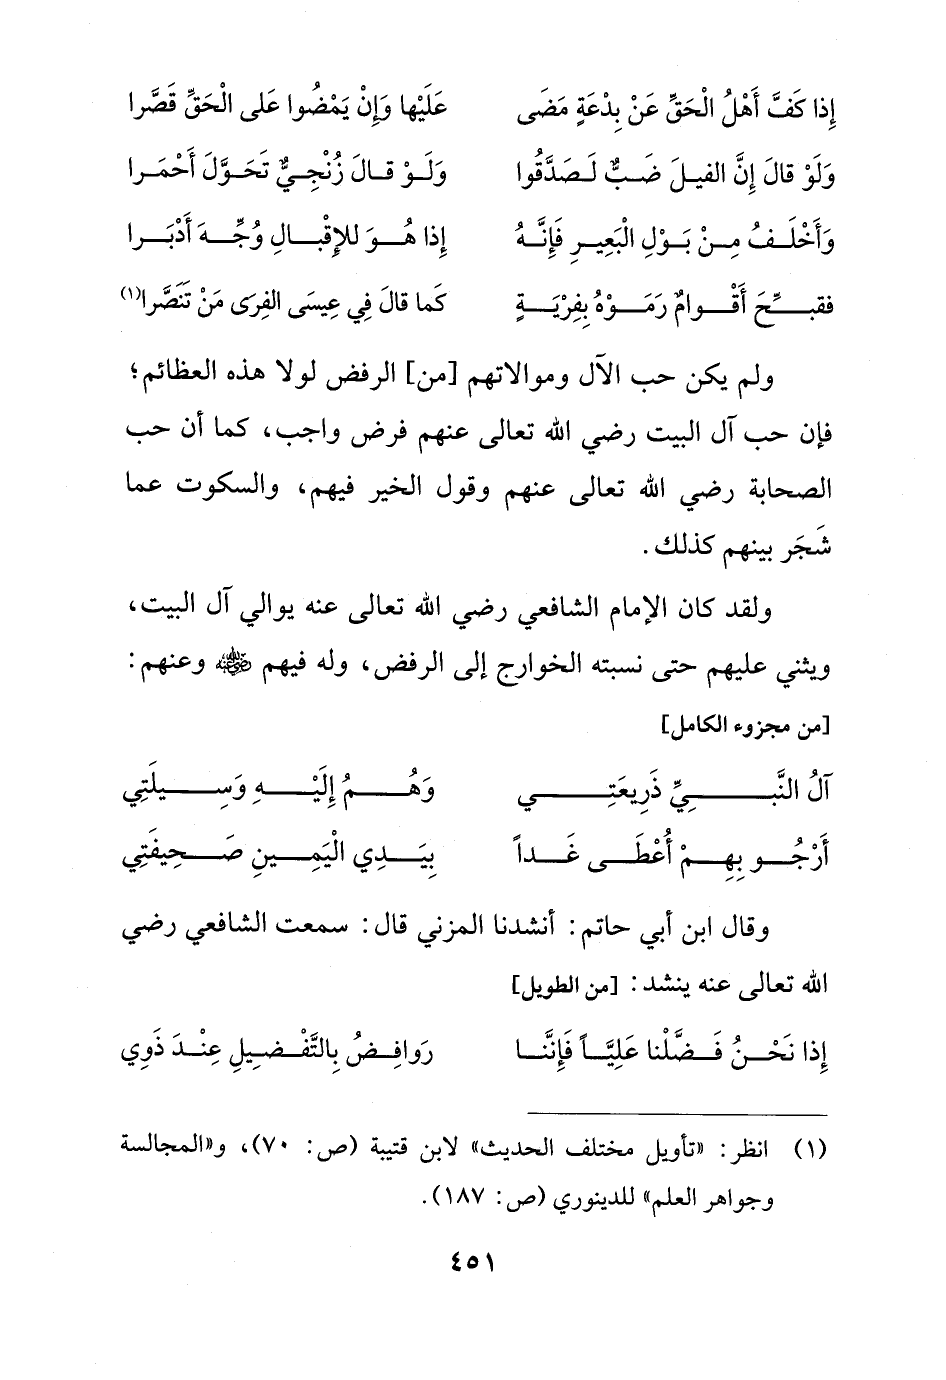 إِذا كَفَّ أَهْلُ الْحَقِّ عَنْ بِدْعَةٍ مَضَى عَلَيْها وَإِنْ يَمْضُوا عَلى الْحَقِّ قَصَّرا
وَلَوْ قالَ إِنَّ الفيلَ ضَبٌّ لَصَدَّقُوا وَلَوْ قالَ زُنْجِيٌّ تَحَوَّلَ أَحْمَرا
وَأَخْلَفُ مِنْ بَوْلِ الْبَعِيرِ فَإِنَّهُ إِذا هُوَ للإِقْبالِ وُجِّهَ أَدْبَرا
فقبِّحَ أَقْوامٌ رَمَوْهُ بِفِرْيَةٍ كَما قالَ فِي عِيسَى الفِرَى مَنْ تَنَصَّرا(١)
ولم يكن حب الآل وموالاتهم [من] الرفض لولا هذه العظائم؛
فإن حب آل البيت رضي الله تعالى عنهم فرض واجب، كما أن حب
الصحابة رضي الله تعالى عنهم وقول الخير فيهم، والسكوت عما
شَجَر بينهم كذلك.
ولقد كان الإمام الشافعي رضي الله تعالى عنه يوالي آل البيت،
ويثني عليهم حتى نسبته الخوارج إلى الرفض، وله فيهم ﷺ وعنهم:
[من مجزوء الكامل]
آلُ النَّبِيِّ ذَرِيعَتِي وَهُمُ إِلَيْهِ وَسِيلَتِي
أَرْجُو بِهِمْ أُعْطَى غَداً بِيَدِي الْيَمِينِ صَحِيفَتِي
وقال ابن أبي حاتم: أنشدنا المزني قال: سمعت الشافعي رضي
الله تعالى عنه ينشد: [من الطويل]
إِذا نَحْنُ فَضَّلْنا عَلِيَّاً فَإِنَّنا رَوافِضُ بِالتَّفْضِيلِ عِنْدَ ذَوِي
(١) انظر: «تأويل مختلف الحديث» لابن قتيبة (ص: ٧٠)، و«المجالسة
وجواهر العلم» للدينوري (ص: ١٨٧).
٤٥١